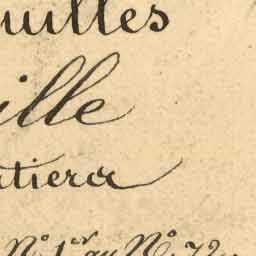 uilles
ille
tiera
N° 1er au N° 72